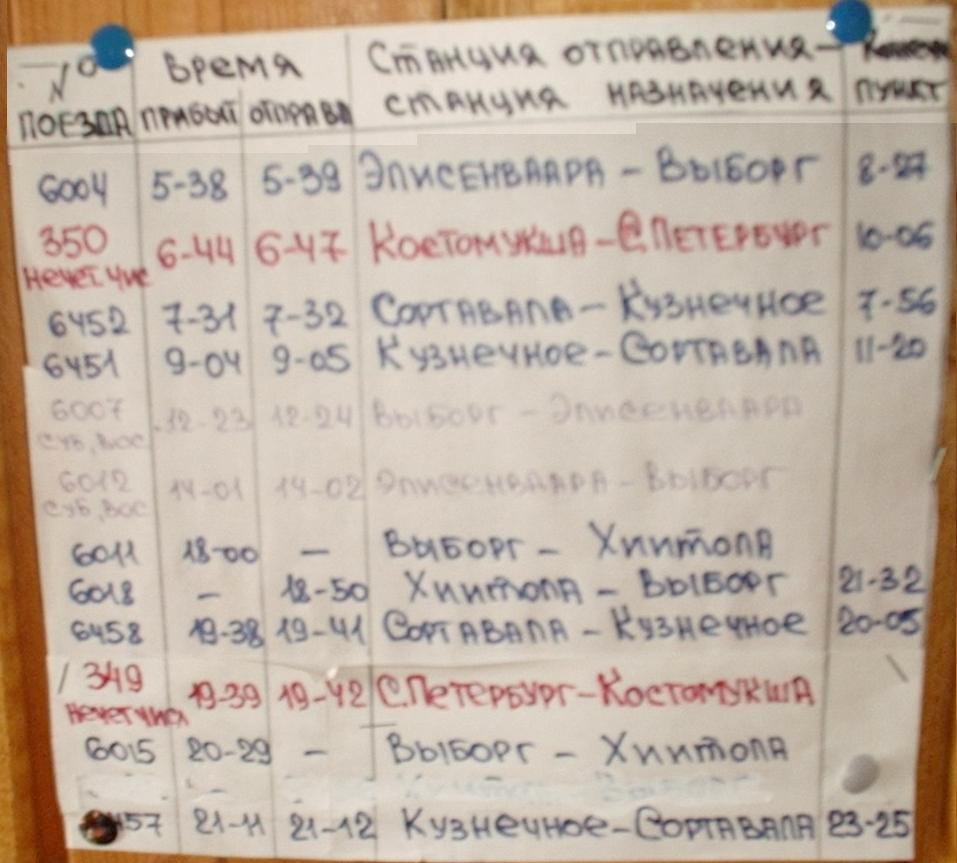 № Время Станция отправления-
поезда прибыт отправл станция назначения пункт
6004 5-38 5-39 Элисенваара - Выборг 8-27
350 6-44 6-47 Костомукша - С.Петербург 10-06
Нечет.чис
6452 7-31 7-32 Сортавала - Кузнечное 7-56
6451 9-04 9-05 Кузнечное - Сортавала 11-20
6007 12-23 12-24 Выборг - Элисенваара
суб, вос
6012 14-01 14-02 Элисенваара - Выборг
суб, вос
6011 18-00 — Выборг - Хиитола
6018 - 18-50 Хиитола - Выборг 21-32
6458 19-38 19-41 Сортавала - Кузнечное 20-05
349 19-39 19-42 С.Петербург - Костомукша
Нечет числ
6015 20-29 - Выборг - Хиитола
57 21-11 21-12 Кузнечное - Сортавала 23-25